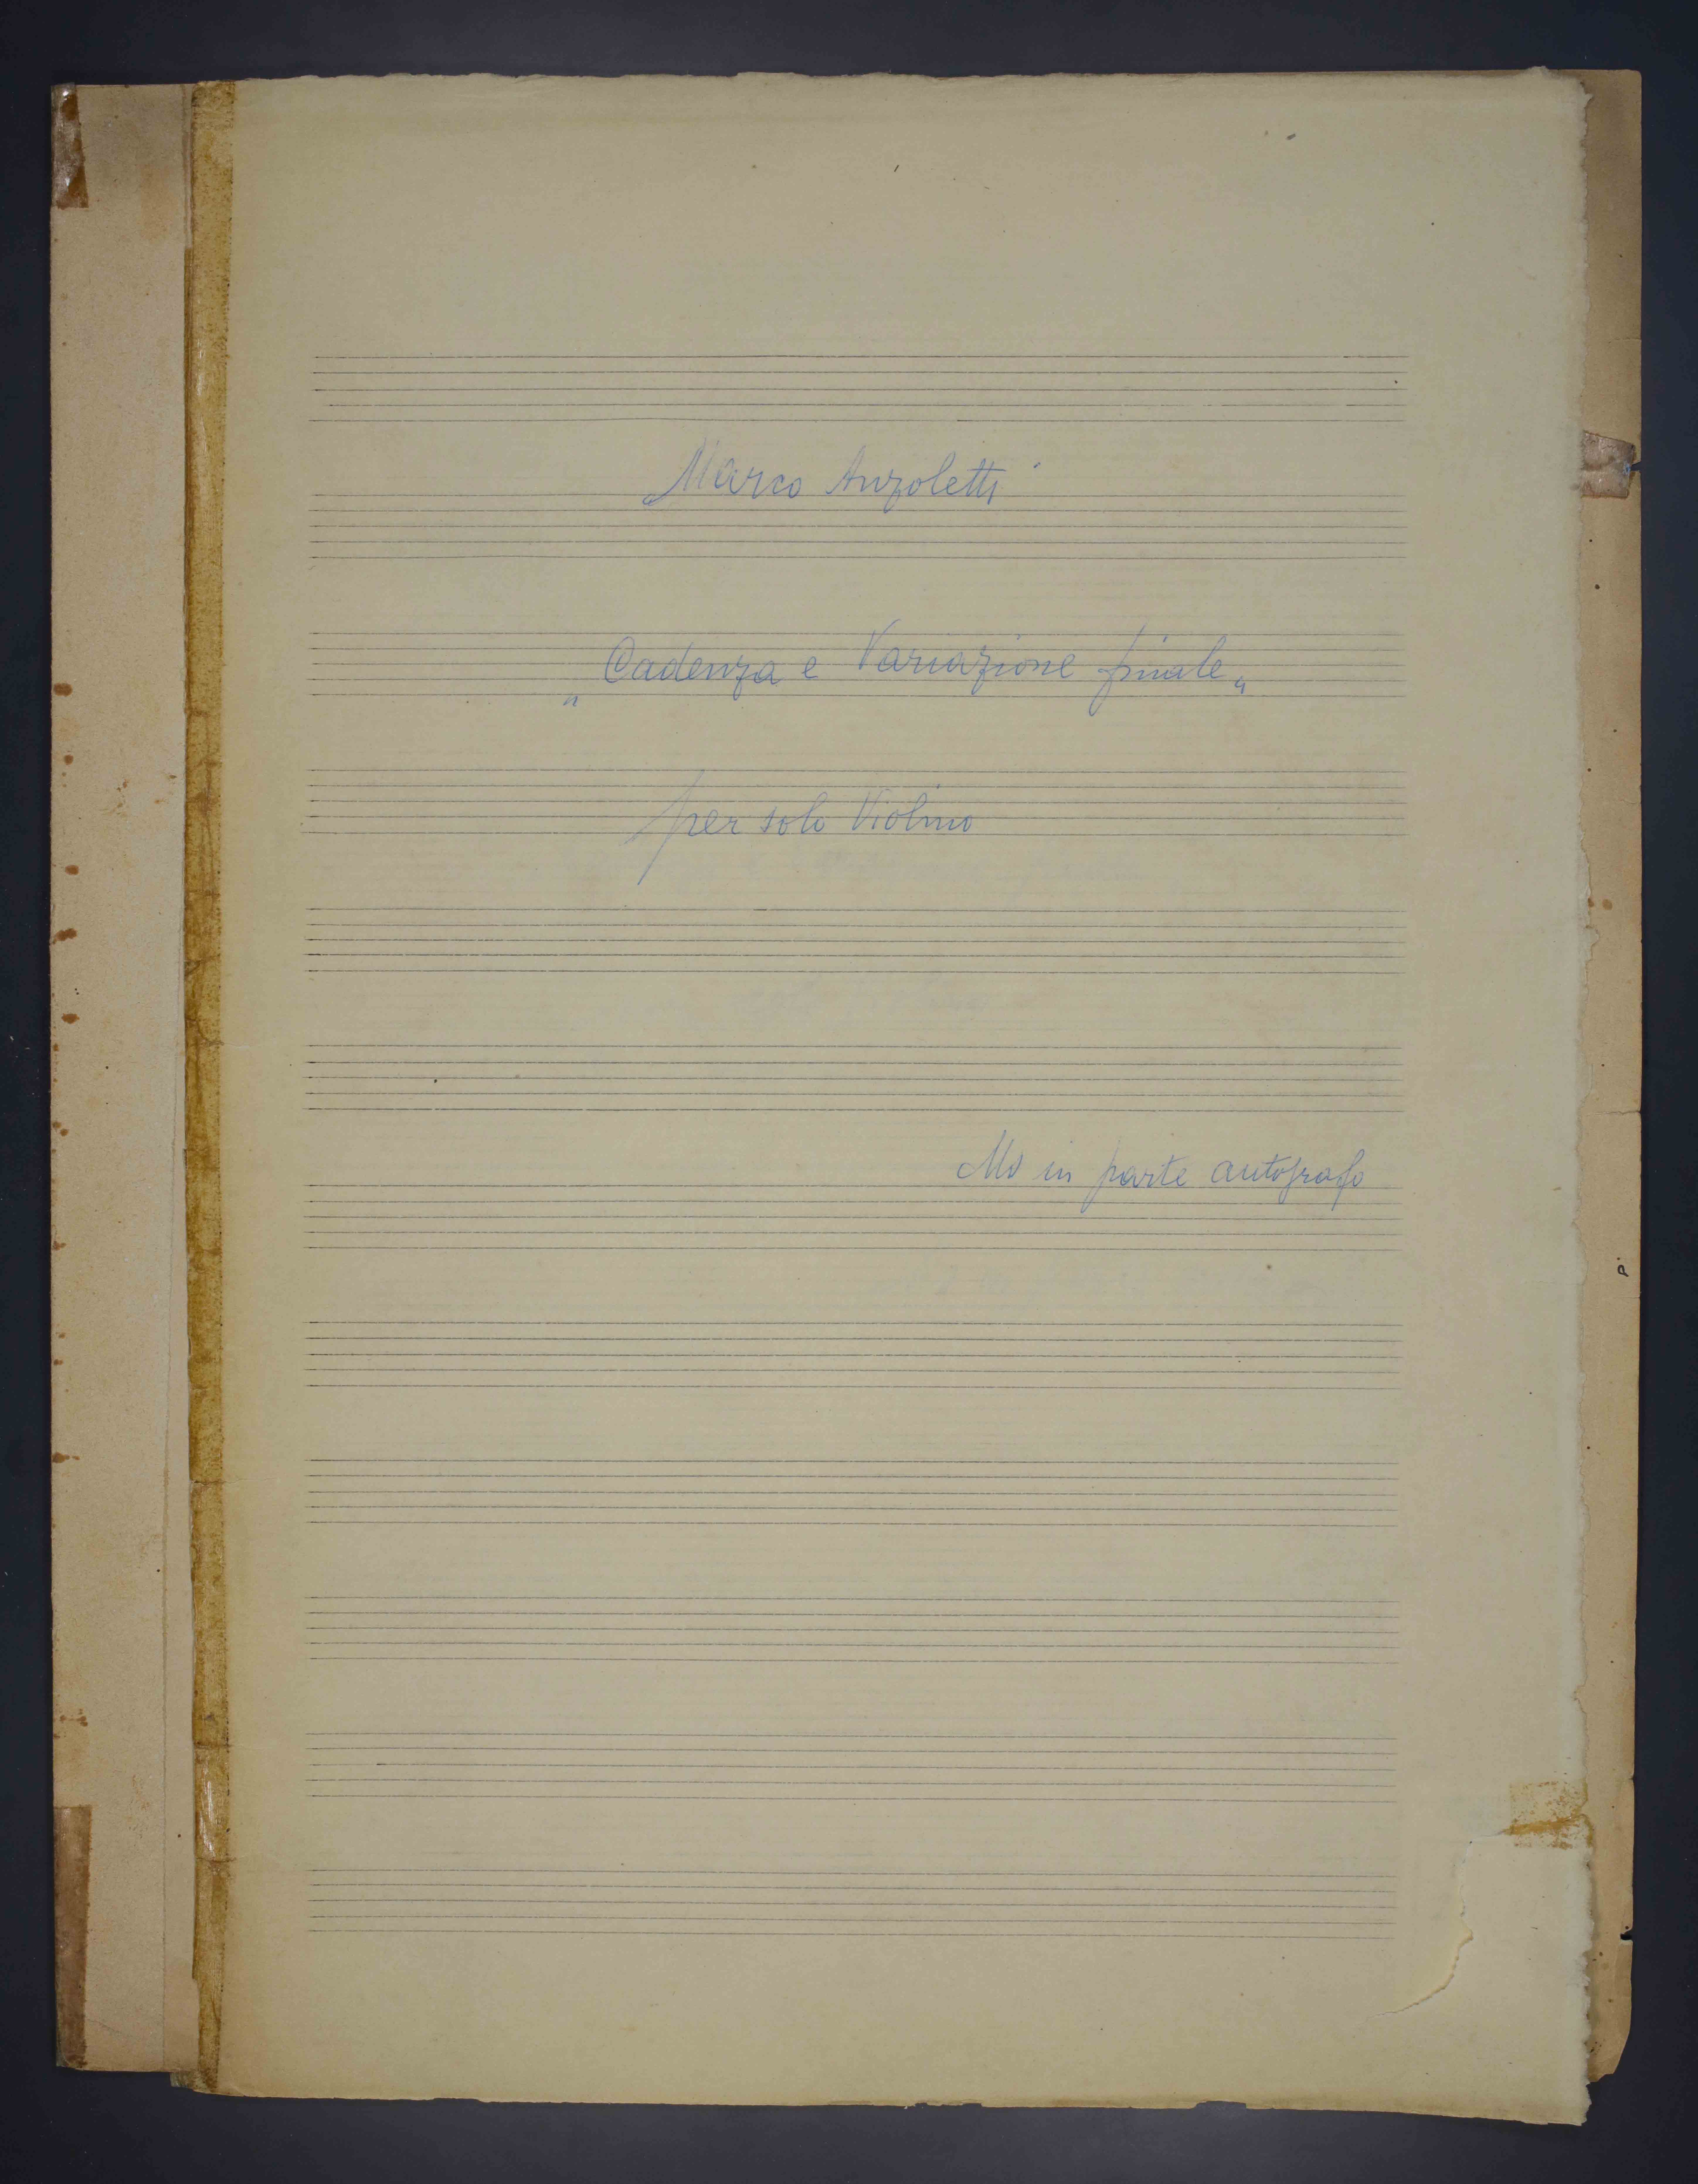 Marco Anzoletti
„Cadenza e Variazione finale„
per solo Violino
Ms in parte autografo